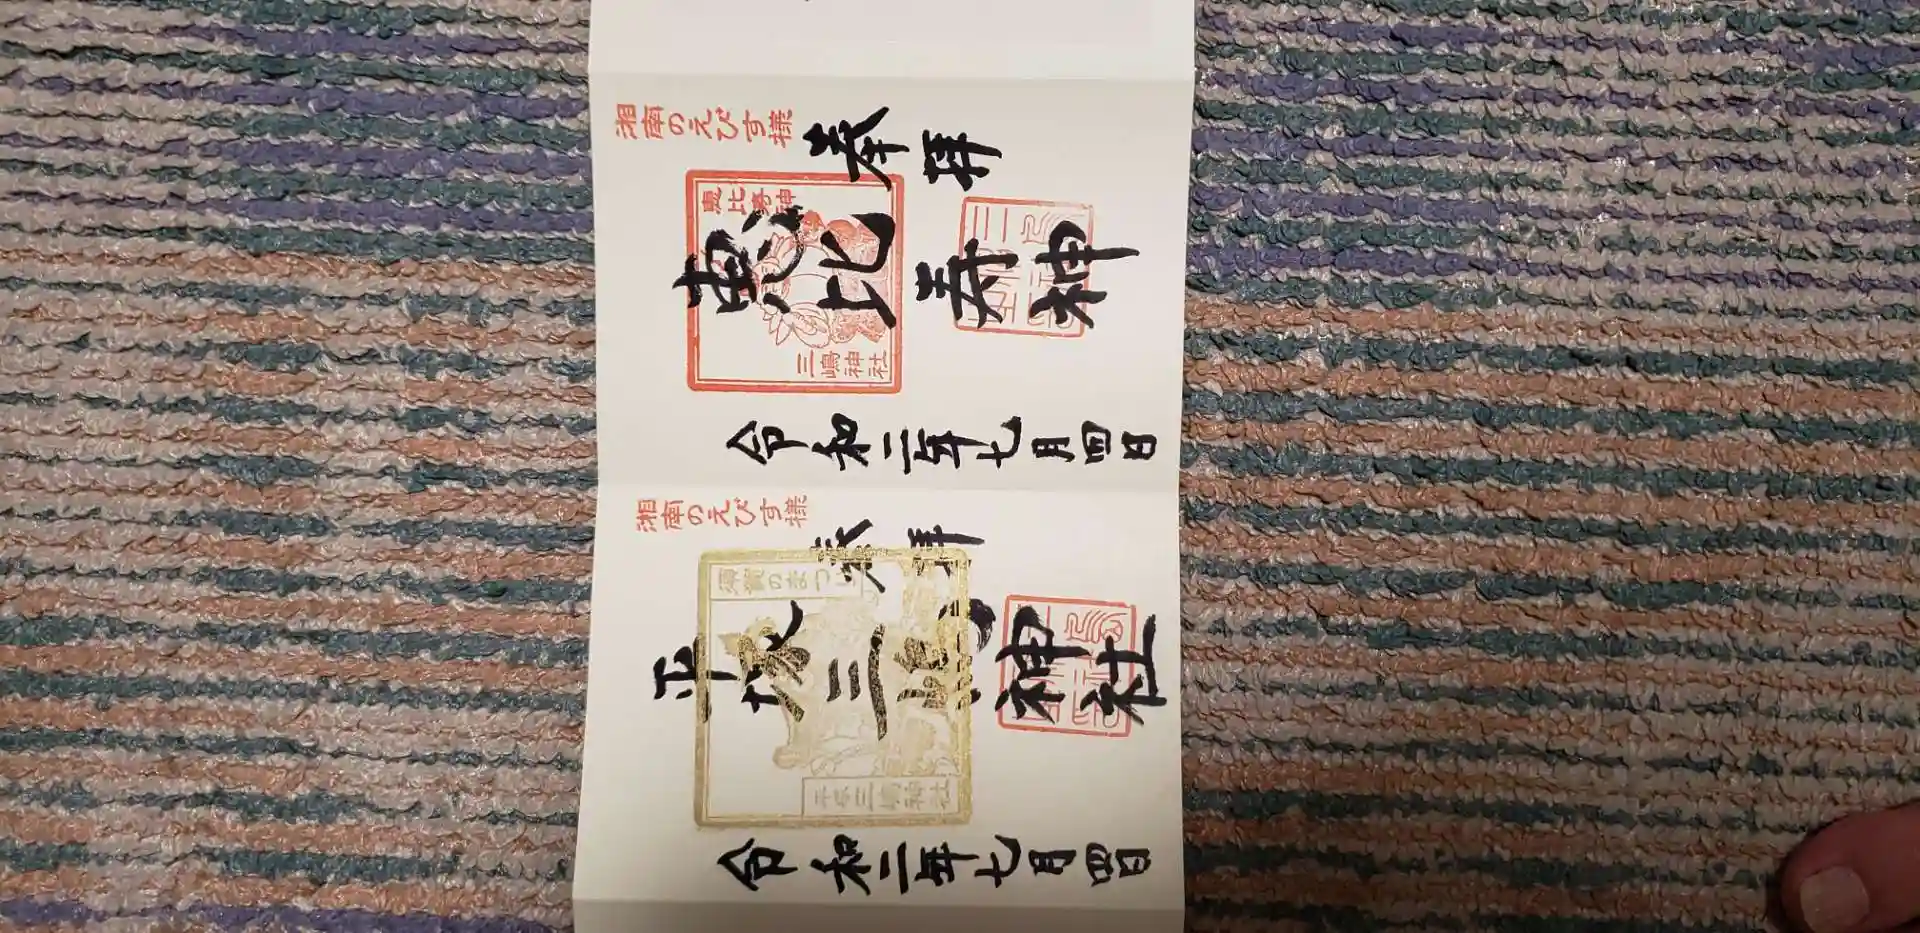 湘南のえびす様
奉拝
恵比寿神
恵比寿神
三嶋神社
令和二年七月四日
湘南のえびす様
奉拝
平塚三嶋神社
須賀のまつり
平塚三嶋神社
令和二年七月四日